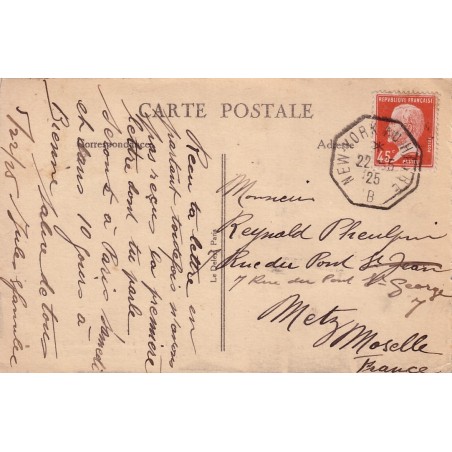 CARTE POSTALE
Correspondance
Adresse
REPUBLIQUE FRANÇAISE
45c
POSTES
NEW-YORK AU HAVRE
22
25
B
Monsieur
Reynald Pheulpin
Rue du Pont St Jean
7 Rue du Pont St-George
7
Metz
Moselle
France
Le Deley, Paris
Reçu ta lettre en
partant toutefois n'avons
pas reçu la première
lettre dont tu parle
Serons à Paris Samedi
et dans 10 jours à
Rennes
de tous
Jules